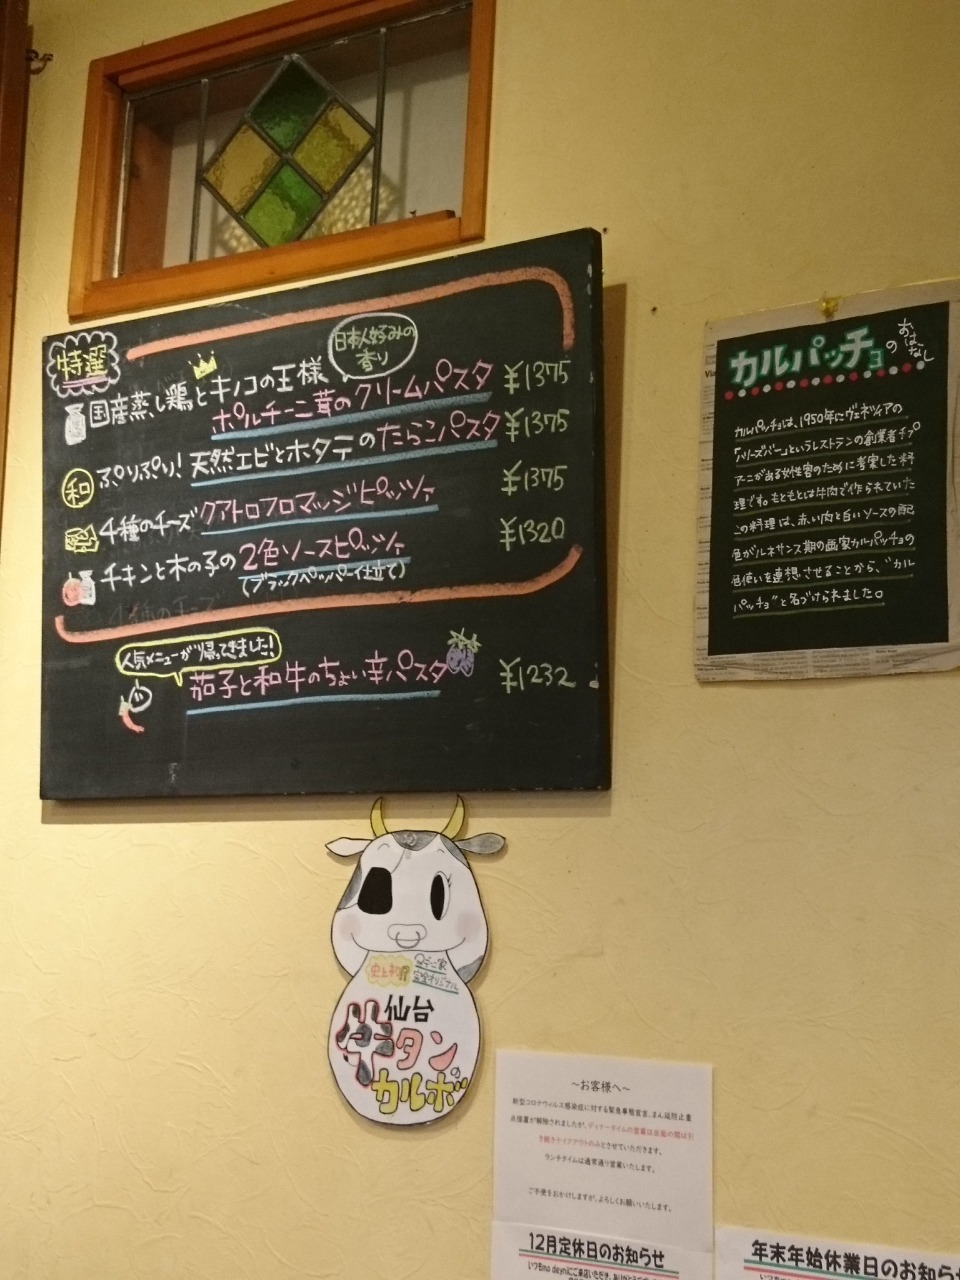 特選
日本人好みの
香り
国産蒸し鶏とキノコの王様
ポルチーニ茸のクリームパスタ ¥1375
和 ぷりぷり!天然エビとホタテのたらこパスタ ¥1375
4種のチーズ クアトロフロマッジピッツァ ¥1375
チキンと木の子の2色ソースピッツァ ¥1320
(ブラックペッパー仕立て)
4種のチーズ
人気メニューが帰ってきました!
茄子と和牛のちょい辛パスタ ¥1232
カルパッチョのおはなし
カルパッチョは、1950年にヴェネツィアの
「ハリーズバー」というレストランの創業者チプリ
アーニがある女性客のために考案した料
理です。もともとは牛肉で作られていた
この料理は、赤い肉と白いソースの配
色がルネサンス期の画家カルパッチョの
色使いを連想させることから、"カル
パッチョ"と名づけられました。
史上初!?
完全オリジナル
仙台
牛タン
の
カルボ
～お客様へ～
新型コロナウィルス感染症に対する緊急事態宣言、まん延防止重
点措置が解除されましたが、ディナータイムの営業は当面の間は引
き続きテイクアウトのみとさせていただきます。
ランチタイムは通常通り営業いたします。
ご不便をおかけしますが、よろしくお願いいたします。
12月定休日のお知らせ
年末年始休業日のお知らせ